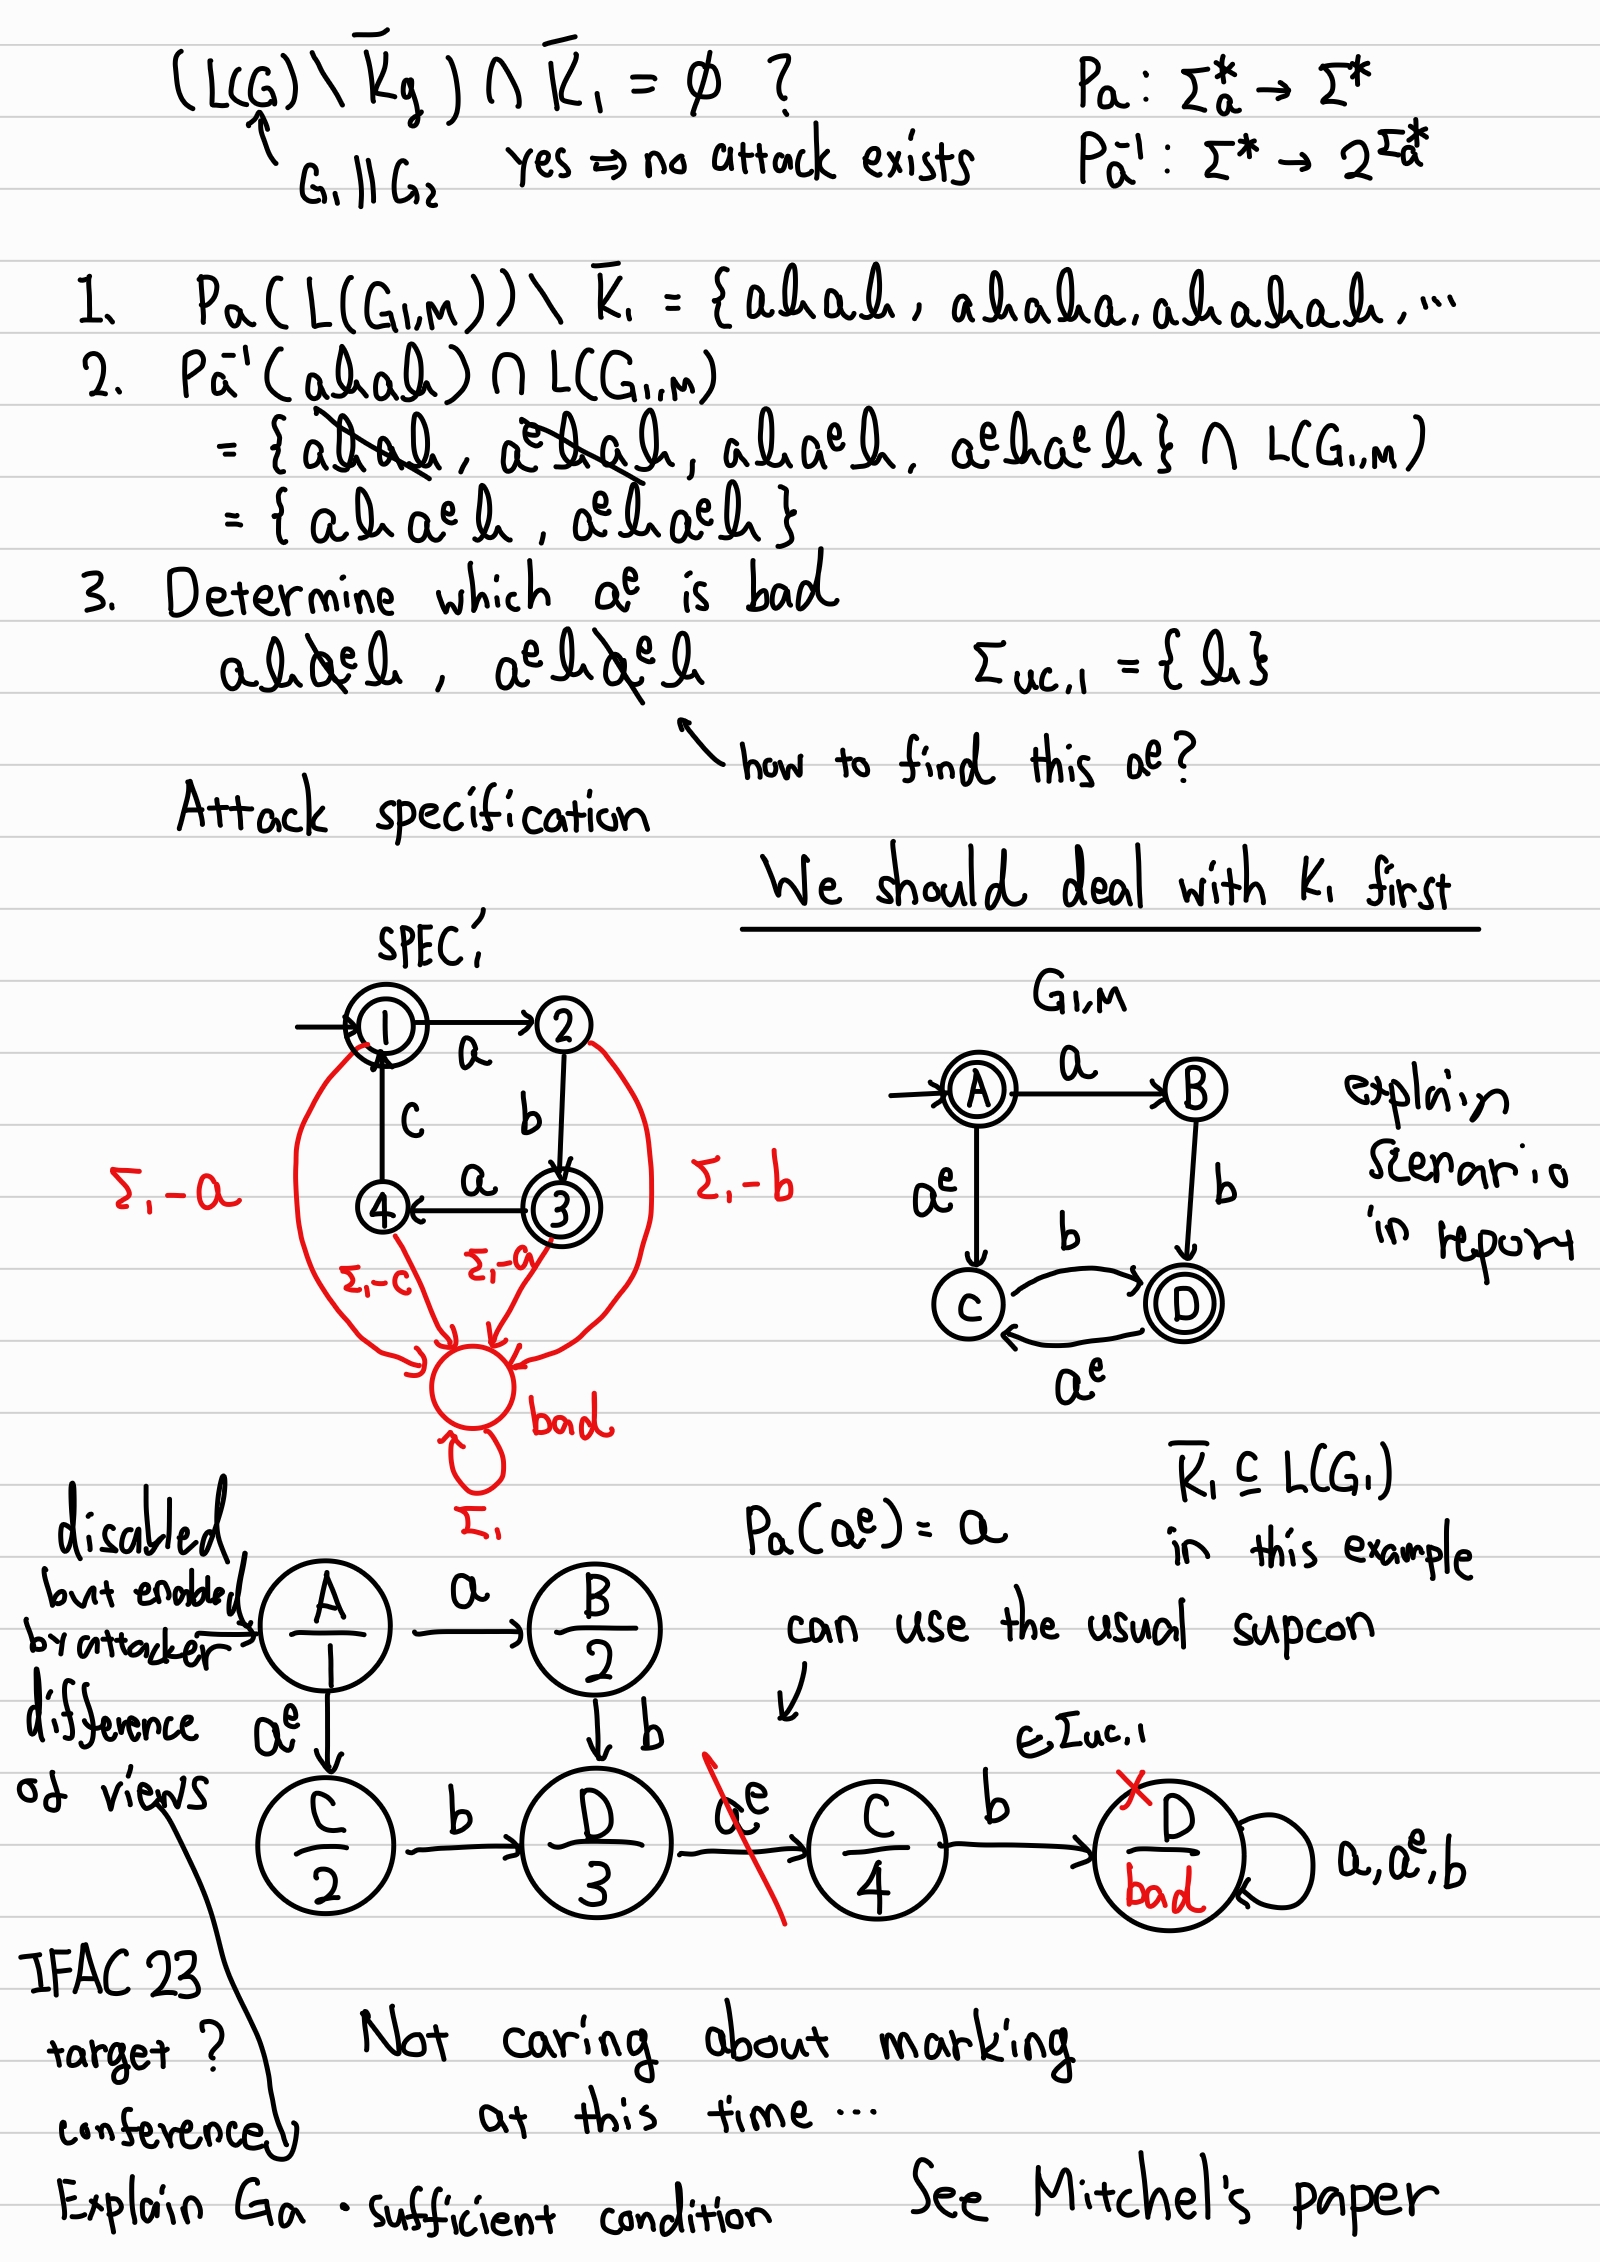 (L(G) \ K̄g) ∩ K̄₁ = ∅ ?
G₁ || G₂ yes ⇒ no attack exists
Pa : Σa* → Σ*
Pa⁻¹ : Σ* → 2^Σa*
1. Pa(L(G₁,M)) \ K̄₁ = {abab, ababa, ababab, ...
2. Pa⁻¹(abab) ∩ L(G₁,M)
= {abab, aᵉbab, abaᵉb, aᵉbaᵉb} ∩ L(G₁,M)
= {abaᵉb, aᵉbaᵉb}
3. Determine which aᵉ is bad
abaᵉb, aᵉbaᵉb Σuc,1 = {b}
how to find this aᵉ?
Attack specification
We should deal with K₁ first
SPEC₁'
1 a 2
c b
4 a 3
Σ₁-a
Σ₁-b
Σ₁-c Σ₁-a
bad
Σ₁
G₁,M
A a B
aᵉ b b
C D
aᵉ
explain
scenario
in report
K̄₁ ⊆ L(G₁)
in this example
Pa(aᵉ) = a
can use the usual supcon
disabled
but enabled
by attacker
difference
of views
A/1 a B/2
aᵉ b ∈Σuc,1
C/2 b D/3 aᵉ C/4 b D/bad a, aᵉ, b
IFAC 23
target ?
conference
Not caring about marking
at this time ...
Explain Ga · sufficient condition
See Mitchel's paper